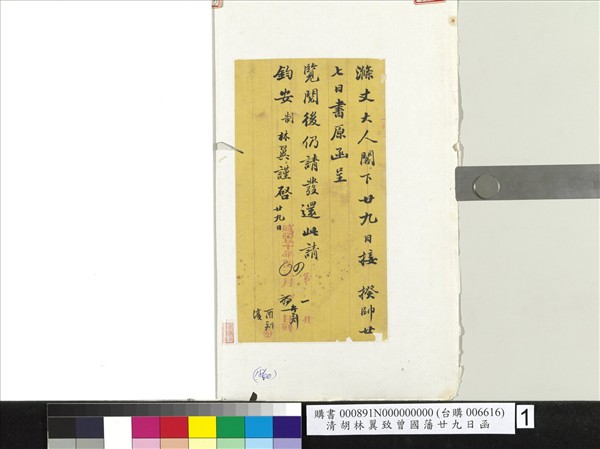 滌丈大人閣下廿九日接 揆帥廿
七日書原函呈
覽閱後仍請發還此請
鈞安 制林翼謹啓 廿九日
購書 000891N000000000 (台購 006616)
清胡林翼致曾國藩廿九日函
1